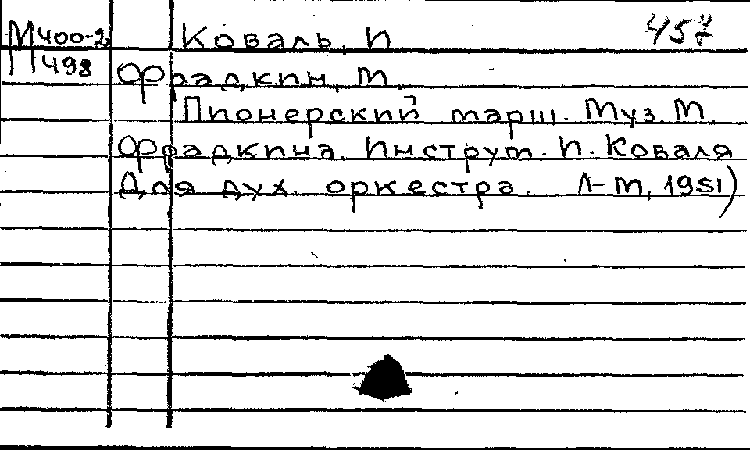 М400-2 Коваль, И 457
П498 Фрадкин, М.
Пионерский марш. Муз. М.
Фрадкина. Инструм. И. Коваля
Для дух. оркестра. Л-М, 1951)